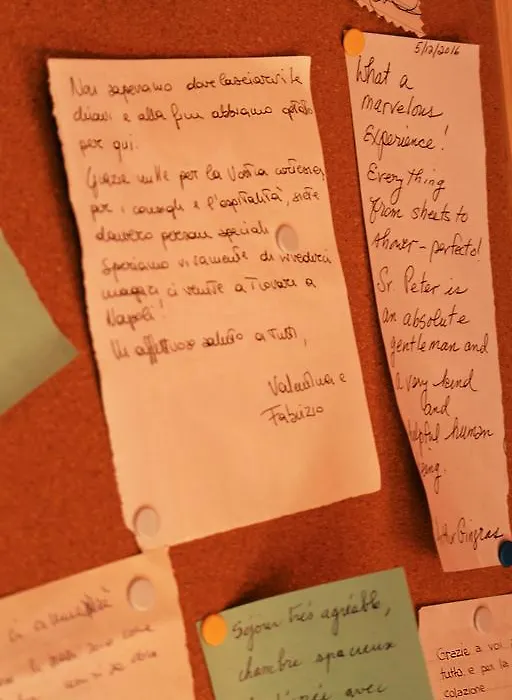 Non sapevamo dove lasciarvi le
chiavi e alla fine abbiamo optato
per qui.
Grazie mille per la Vostra cortesia,
per i consigli e l'ospitalità, siete
davvero persone speciali
Speriamo vivamente di rivederci
magari ci venite a trovare a
Napoli!
Un affettuoso saluto a tutti,
Valentina e
Fabrizio
5/12/2016
What a
marvelous
experience!
Everything
from sheets to
shower - perfecto!
Sr. Peter is
an absolute
gentleman and
a very kind
and
helpful human
being.
Gingras
Séjour très agréable,
chambre spacieuse
avec
Grazie a voi
tutto, e per la
colazione